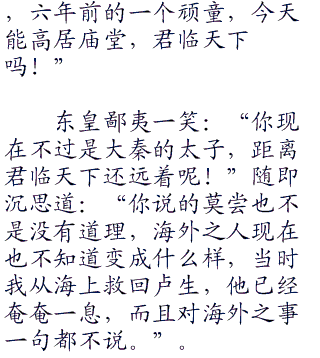 ，六年前的一个顽童，今天
能高居庙堂，君临天下
吗！”
东皇鄙夷一笑：“你现
在不过是大秦的太子，距离
君临天下还远着呢！”随即
沉思道：“你说的莫尝也不
是没有道理，海外之人现在
也不知道变成什么样，当时
我从海上救回卢生，他已经
奄奄一息，而且对海外之事
一句都不说。”。